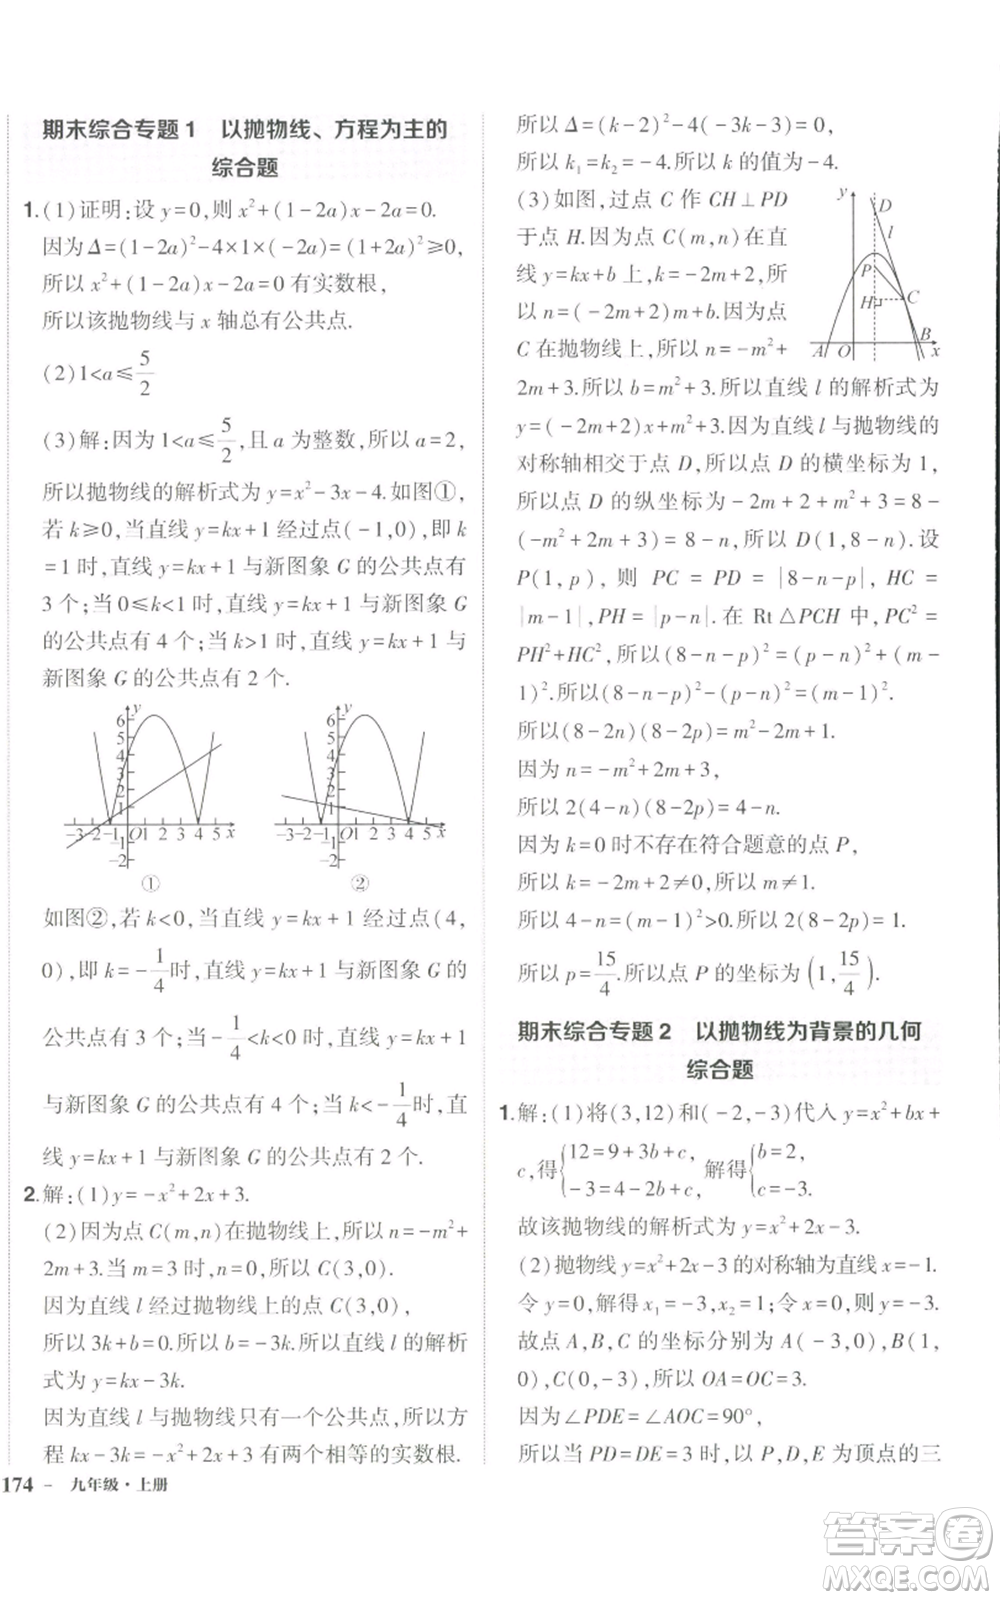 期末综合专题1 以抛物线、方程为主的
综合题
1.(1)证明:设 y=0,则 x²+(1-2a)x-2a=0.
因为Δ=(1-2a)²-4×1×(-2a)=(1+2a)²≥0,
所以 x²+(1-2a)x-2a=0 有实数根,
所以该抛物线与 x 轴总有公共点.
(2)1<a≤5/2
(3)解:因为 1<a≤5/2,且 a 为整数,所以 a=2,
所以抛物线的解析式为 y=x²-3x-4.如图①,
若 k≥0,当直线 y=kx+1 经过点(-1,0),即 k
=1时,直线 y=kx+1 与新图象 G 的公共点有
3个;当 0≤k<1 时,直线 y=kx+1 与新图象 G
的公共点有 4 个;当 k>1 时,直线 y=kx+1 与
新图象 G 的公共点有 2 个.
y
6
5
4
3
2
1
-3 -2 -1 O 1 2 3 4 5 x
-1
-2
①
y
6
5
4
3
2
1
-3 -2 -1 O 1 2 3 4 5 x
-1
-2
②
如图②,若 k<0,当直线 y=kx+1 经过点(4,
0),即 k=-1/4时,直线 y=kx+1 与新图象 G 的
公共点有 3 个;当-1/4<k<0 时,直线 y=kx+1
与新图象 G 的公共点有 4 个;当 k<-1/4时,直
线 y=kx+1 与新图象 G 的公共点有 2 个.
2.解:(1)y=-x²+2x+3.
(2)因为点 C(m,n)在抛物线上,所以 n=-m²+
2m+3.当 m=3 时,n=0,所以 C(3,0).
因为直线 l 经过抛物线上的点 C(3,0),
所以 3k+b=0,所以 b=-3k,所以直线 l 的解析
式为 y=kx-3k.
因为直线 l 与抛物线只有一个公共点,所以方
程 kx-3k=-x²+2x+3 有两个相等的实数根.
174 - 九年级·上册
所以Δ=(k-2)²-4(-3k-3)=0,
所以 k₁=k₂=-4,所以 k 的值为-4.
(3)如图,过点 C 作 CH⊥PD
于点 H.因为点 C(m,n)在直
线 y=kx+b 上,k=-2m+2,所
以 n=(-2m+2)m+b.因为点
C 在抛物线上,所以 n=-m²+
y
D
l
P
H
C
A
O
B
x
2m+3.所以 b=m²+3.所以直线 l 的解析式为
y=(-2m+2)x+m²+3.因为直线 l 与抛物线的
对称轴相交于点 D,所以点 D 的横坐标为 1,
所以点 D 的纵坐标为-2m+2+m²+3=8-
(-m²+2m+3)=8-n,所以 D(1,8-n).设
P(1,p),则 PC=PD=|8-n-p|,HC=
|m-1|,PH=|p-n|.在 Rt△PCH 中,PC²=
PH²+HC²,所以(8-n-p)²=(p-n)²+(m-
1)².所以(8-n-p)²-(p-n)²=(m-1)².
所以(8-2n)(8-2p)=m²-2m+1.
因为 n=-m²+2m+3,
所以 2(4-n)(8-2p)=4-n.
因为 k=0 时不存在符合题意的点 P,
所以 k=-2m+2≠0,所以 m≠1.
所以 4-n=(m-1)²>0.所以 2(8-2p)=1.
所以 p=15/4.所以点 P 的坐标为(1,15/4).
期末综合专题2 以抛物线为背景的几何
综合题
1.解:(1)将(3,12)和(-2,-3)代入 y=x²+bx+
c,得{12=9+3b+c, -3=4-2b+c, 解得{b=2, c=-3,
故该抛物线的解析式为 y=x²+2x-3.
(2)抛物线 y=x²+2x-3 的对称轴为直线 x=-1.
令 y=0,解得 x₁=-3,x₂=1;令 x=0,则 y=-3.
故点 A,B,C 的坐标分别为 A(-3,0),B(1,
0),C(0,-3),所以 OA=OC=3.
因为∠PDE=∠AOC=90°,
所以当 PD=DE=3 时,以 P,D,E 为顶点的三
答案卷
www.daanjuan.com